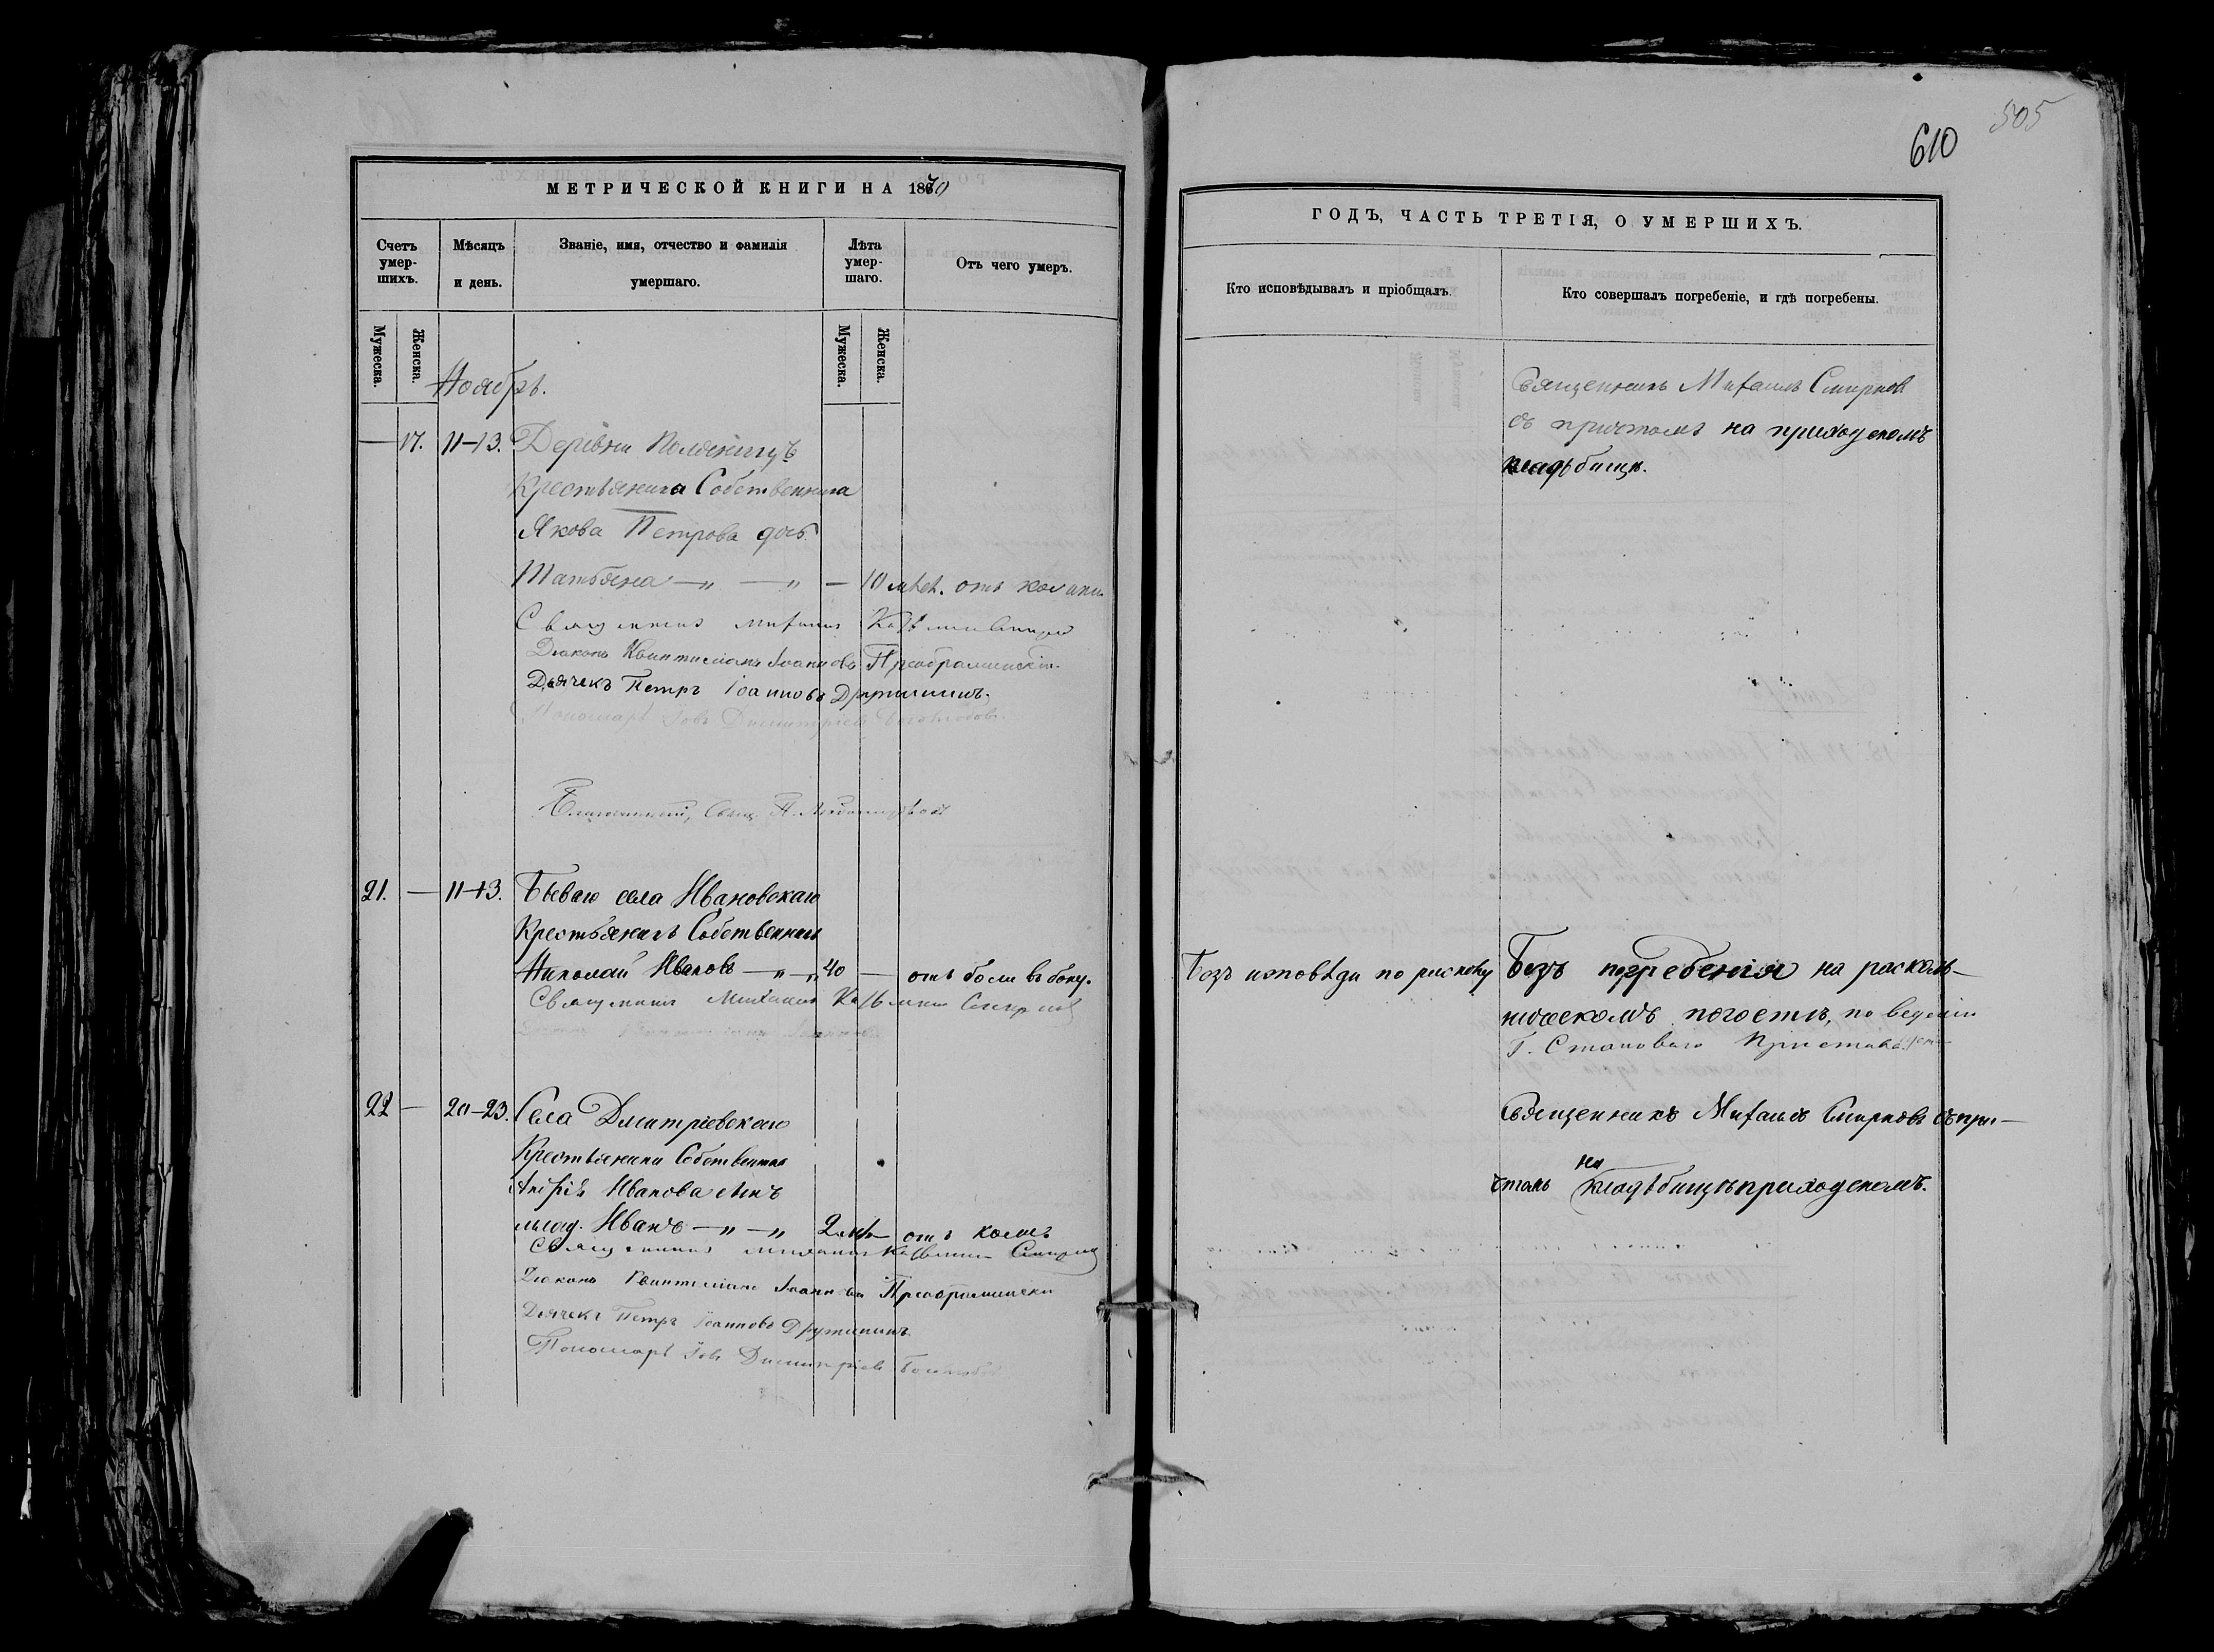 МЕТРИЧЕСКОЙ КНИГИ НА 1870
Счетъ умер-шихъ.
Мѣсяцъ и день.
Званіе, имя, отчество и фамилія умершаго.
Лѣта умер-шаго.
Отъ чего умеръ.
Мужеска.
Женска.
Мужеска.
Женска.
Ноябрь.
— 17. 11–13. Деревни
Крестьянина Собственника
Якова Петрова дочь
Татьяна —„ —„ — 10 лѣт. отъ
Священникъ Михаилъ
Діаконъ Іоанновъ Преображенскій
Дьячекъ Петръ Іоанновъ Дружининъ.
Пономарь Іовъ Димитріевъ
Благочинный, Свящ. П.
21. — 11–13. Бываго села Ивановскаго
Крестьянинъ Собственникъ
Николай Ивановъ —„—„ 40 — отъ боли въ боку.
Священникъ Михаилъ Смирновъ
22 — 20–23. Села Дмитріевскаго
Крестьянина Собственника
Андрея Иванова сынъ
млад. Иванъ —„—„ 2 отъ
Священникъ Михаилъ Смирновъ
Діаконъ Іоанновъ Преображенскій
Дьячекъ Петръ Іоанновъ Дружининъ.
Пономарь Іовъ Димитріевъ
610
505
ГОДЪ, ЧАСТЬ ТРЕТІЯ, О УМЕРШИХЪ.
Кто исповѣдывалъ и пріобщалъ.
Кто совершалъ погребеніе, и гдѣ погребены.
Священникъ Михаилъ Смирновъ
съ причтомъ на приходскомъ
кладбищѣ.
Безъ исповѣди по расколу
Безъ погребенія на расколь-
ническомъ погостѣ, по веденію
Г. Становаго Пристава
Священникъ Михаилъ Смирновъ съ при-
чтомъ на кладбищѣ приходскомъ.